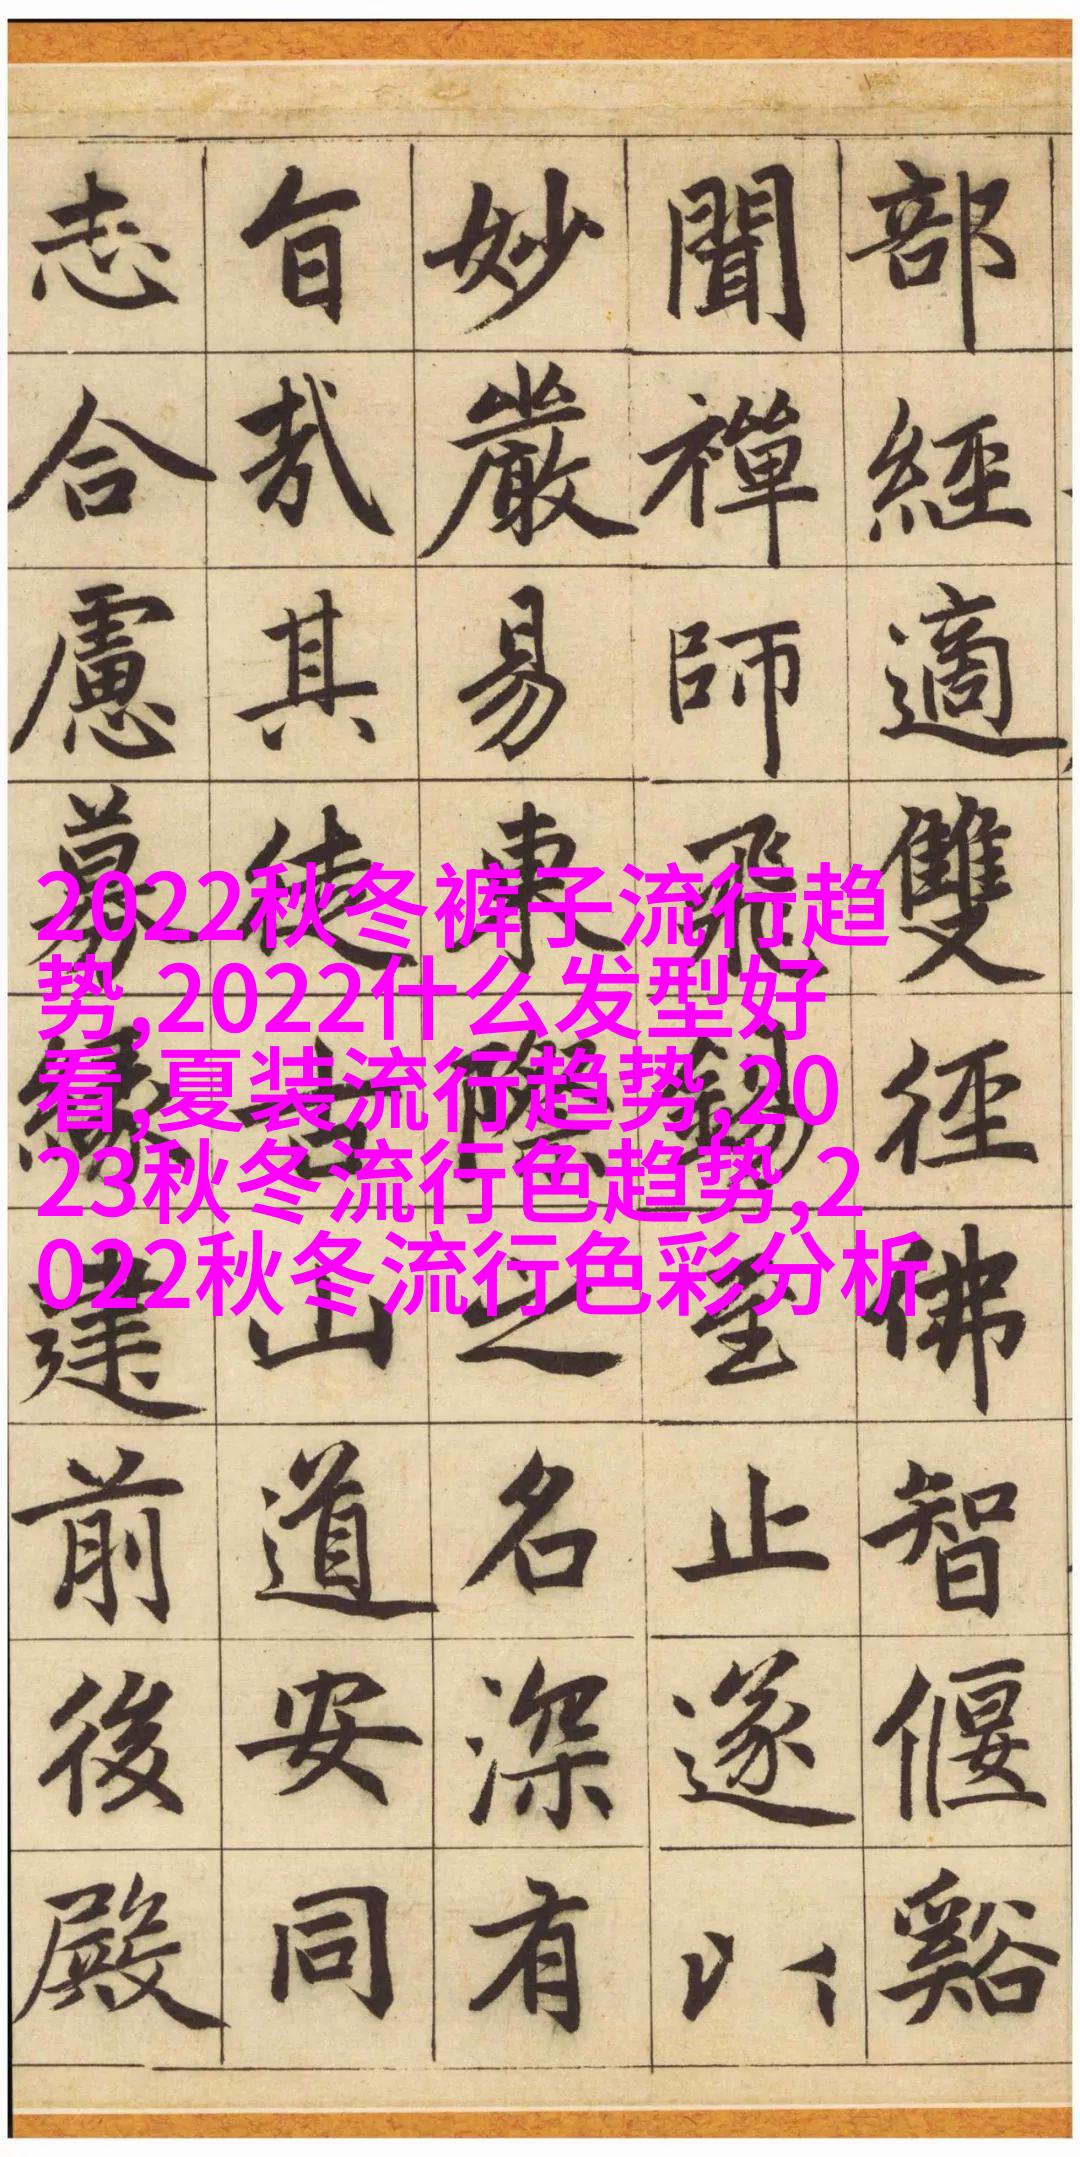 部經適雙徑佛智偃谿
聞禪師飛錫至止遂以
妙嚴易東際之名深有
旨哉其徒古山道安同
志合慮募緣建前後殿
2022秋冬裤子流行趋
势,2022什么发型好
看,夏装流行趋势,20
23秋冬流行色趋势,2
022秋冬流行色彩分析